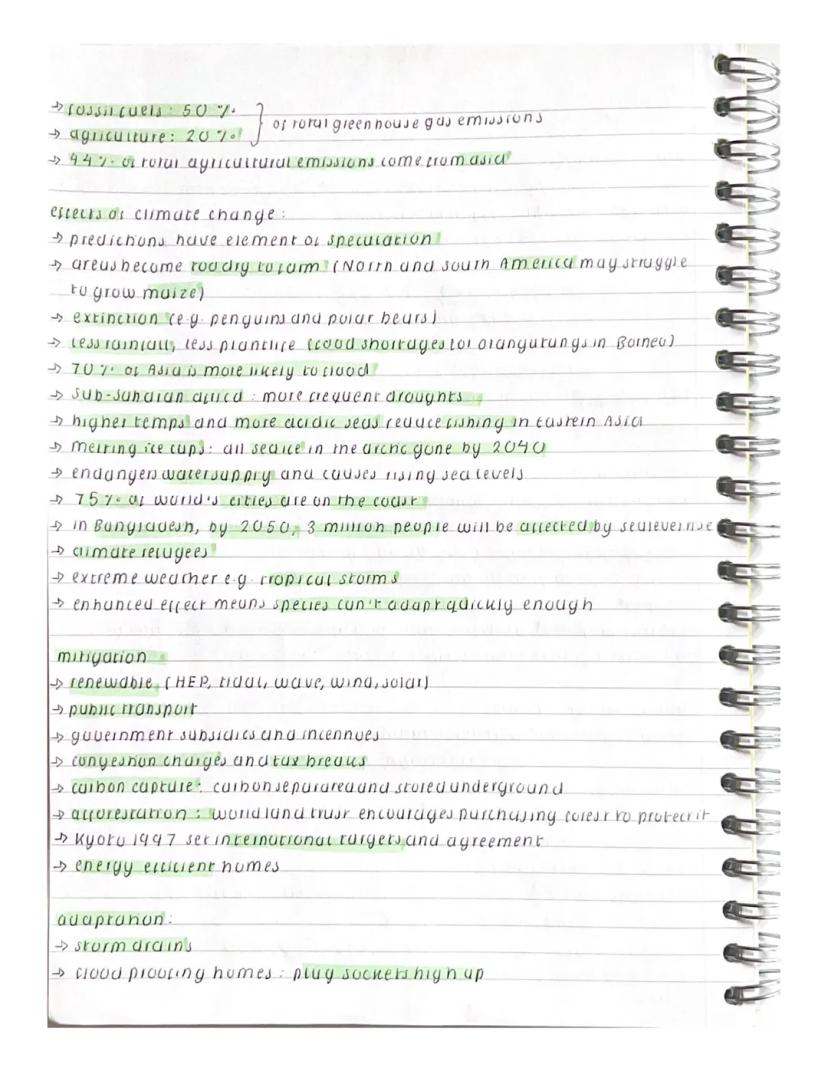 → fossil fuels: 50%
→ agriculture: 20% } of total greenhouse gas emissions
→ 44% of total agricultural emissions come from asia
effects of climate change:
→ predictions have element of speculation
→ areas become too dry to farm (North and south America may struggle
to grow maize)
→ extinction (e.g. penguins and polar bears)
→ less rainfall, less plantlife (food shortages for orangutangs in Borneo)
→ 70% of Asia is more likely to flood
→ sub-saharan africa: more frequent droughts
→ higher temps and more acidic seas reduce fishing in Eastern Asia
→ melting ice caps: all sea ice in the arctic gone by 2040
→ endangers water supply and causes rising sea levels
→ 75% of world's cities are on the coast
→ in Bangladesh, by 2050, 3 million people will be affected by sea level rise
→ climate refugees
→ extreme weather e.g. tropical storms
→ enhanced effect means species can't adapt quickly enough
mitigation
→ renewable (HEP, tidal, wave, wind, solar)
→ public transport
→ government subsidies and incentives
→ congestion charges and tax breaks
→ carbon capture: carbon separated and stored underground
→ afforestation: world land trust encourages purchasing forest to protect it
→ Kyoto 1997 set international targets and agreement
→ energy efficient homes
adaptation:
→ storm drains
→ flood proofing homes: plug sockets high up